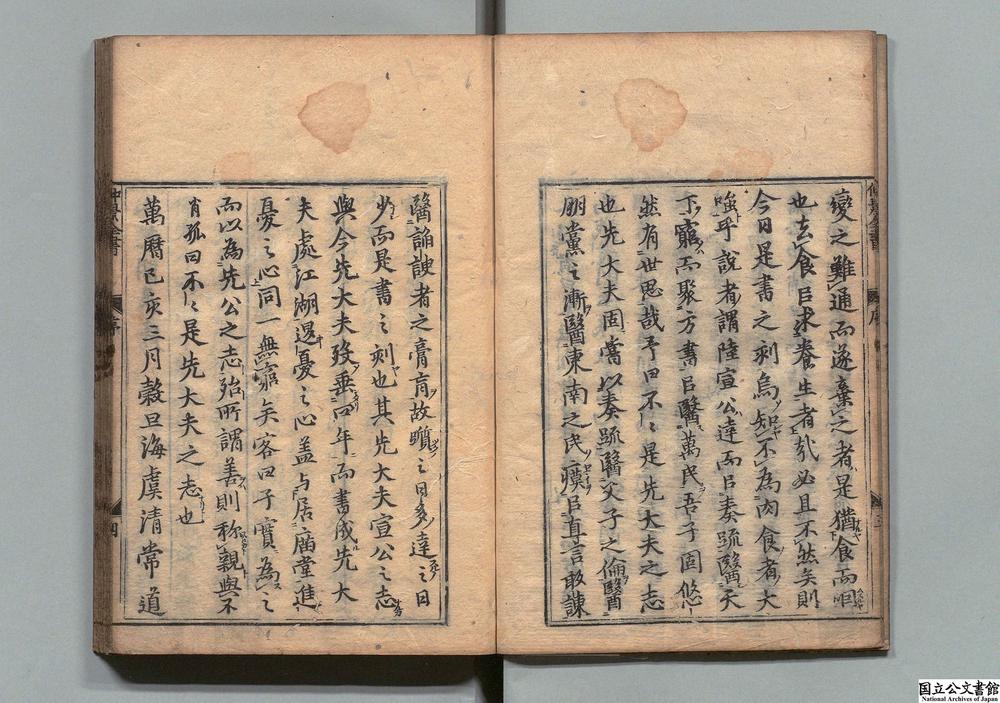 變之難通而遂棄之者是猶食而咽
也去食以求養生者哉必且不然矣則
今日是書之刻烏知不為肉食者大
嗤乎說者謂陸宣公達而以奏疏醫天
下窮而聚方書以醫萬民吾子固悠
然有世思哉予曰不〻是先大夫之志
也先大夫固嘗以奏疏醫父子之倫醫
朋黨之漸醫東南之民瘼以直言敢諫
醫諭諛者之膏肓故躓之日多達之日
少而是書之刻也其先大夫宣公之志
與今先大夫歿垂四年而書成先大
夫處江湖退憂之心盖与居廟堂進
憂之心同一無窮矣客曰子實為之
而以為先公之志殆所謂善則称親與不
肖孤曰不〻是先大夫之志也
萬曆己亥三月穀旦海虞清常道
序
四
国立公文書館
National Archives of Japan